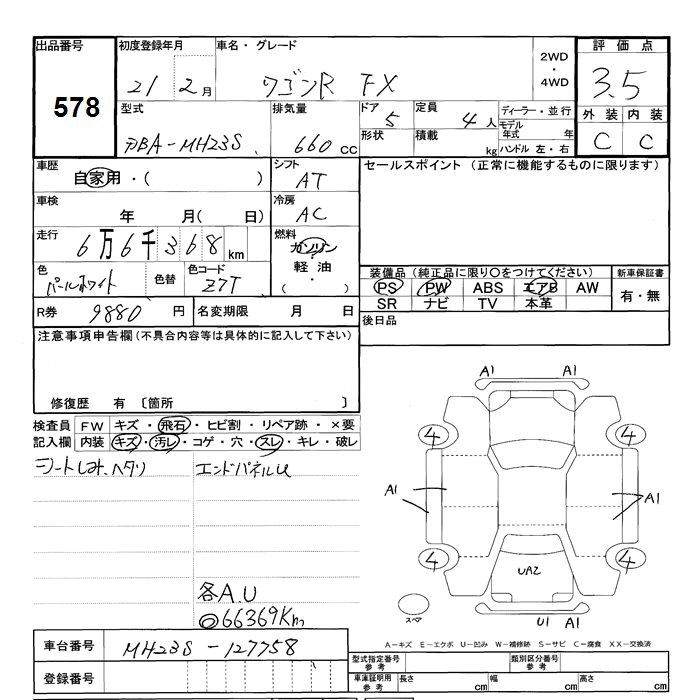 出品番号 初度登録年月 車名・グレード 2WD・4WD 評価点
578 21 2月 ワゴンR FX 3.5
外装 内装
C C
型式 排気量 ドア 5 定員 4人 ディーラー・並行
DBA-MH23S 660cc 形状 積載 kg モデル年式 年
ハンドル 左・右
車歴 自家用・( ) シフト AT セールスポイント (正常に機能するものに限ります)
車検 年 月( 日) 冷房 AC
走行 6万6千368km 燃料 ガソリン・軽油・
色 パールホワイト 色替 色コード Z7T
装備品(純正品に限り○をつけてください) 新車保証書
PS PW ABS エアB AW 有・無
SR ナビ TV 本革
R券 9880円 名変期限 月 日 後日品
注意事項申告欄(不具合内容等は具体的に記入して下さい)
修復歴 有 〔箇所 〕
検査員 FW キズ・飛石・ヒビ割・リペア跡・×要
記入欄 内装 キズ・汚レ・コゲ・穴・スレ・キレ・破レ
シートしみ、ヘタリ エンドパネルU
A1 A1
4 4
A1 A1
4 4
UA2
スペア
U1 A1
各A.U
◎66369Km
A-キズ E-エクボ U-凹み W-補修跡 S-サビ C-腐食 XX-交換済
車台番号 MH23S-127758
登録番号
型式指定番号 参考 類別区分番号 参考
車庫証明用 参考 長さ cm 幅 cm 高さ cm